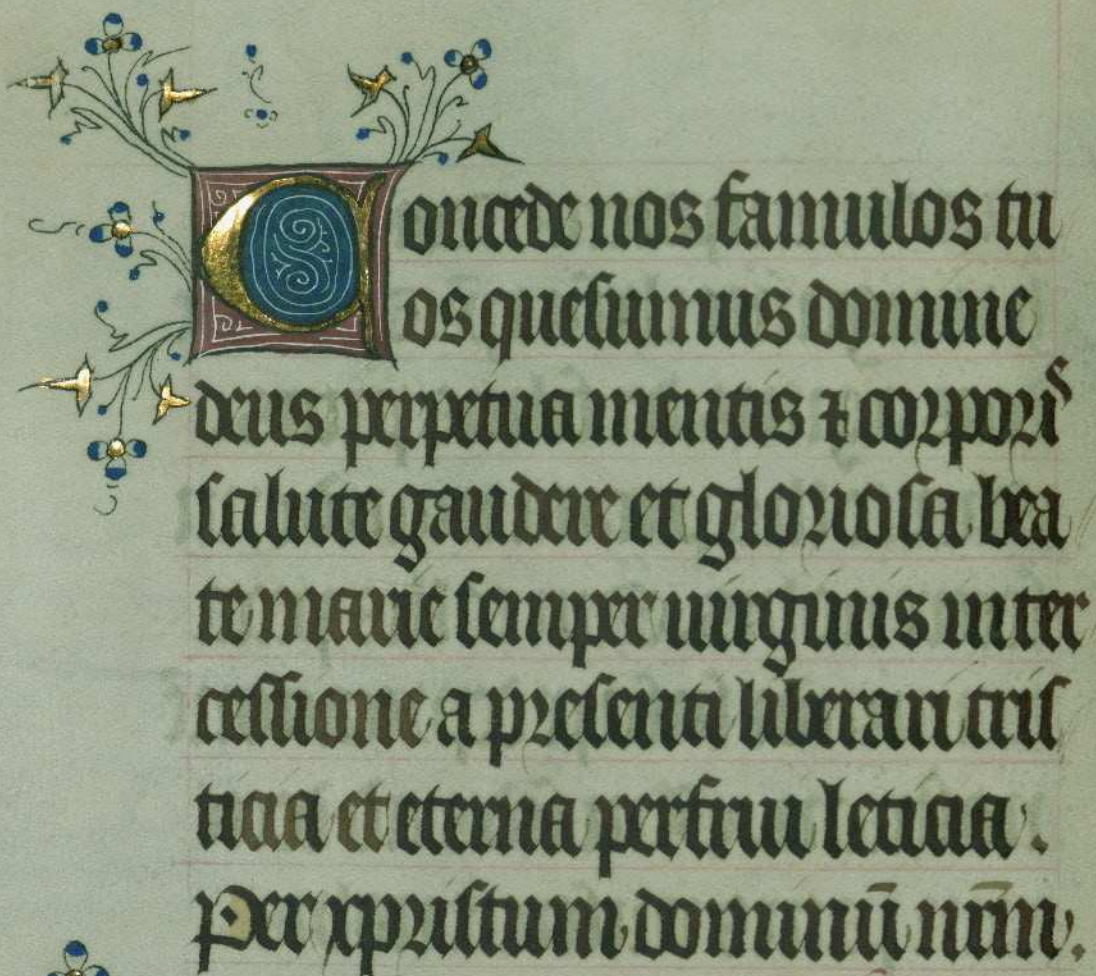 Concede nos famulos tu
os quesumus domine
deus perpetua mentis ⁊ corporis
salute gaudere et gloriosa bea
te marie semper uirginis inter
cessione a presenti liberari tris
ticia et eterna perfrui leticia.
Per xpristum dominū nr̄m.